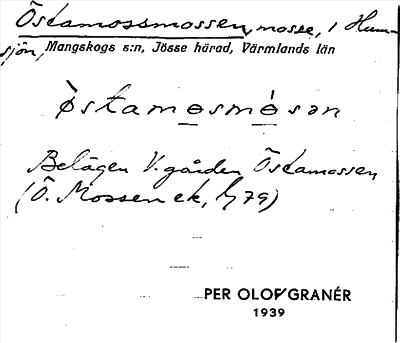 Östamossmossen, mosse, i Hum-
sjön, Mangskogs s:n, Jösse härad, Värmlands län
östamosmosən
Belägen V. gården Östamossen
(Ö. Mossen ek, 79)
PER OLOF GRANÉR
1939